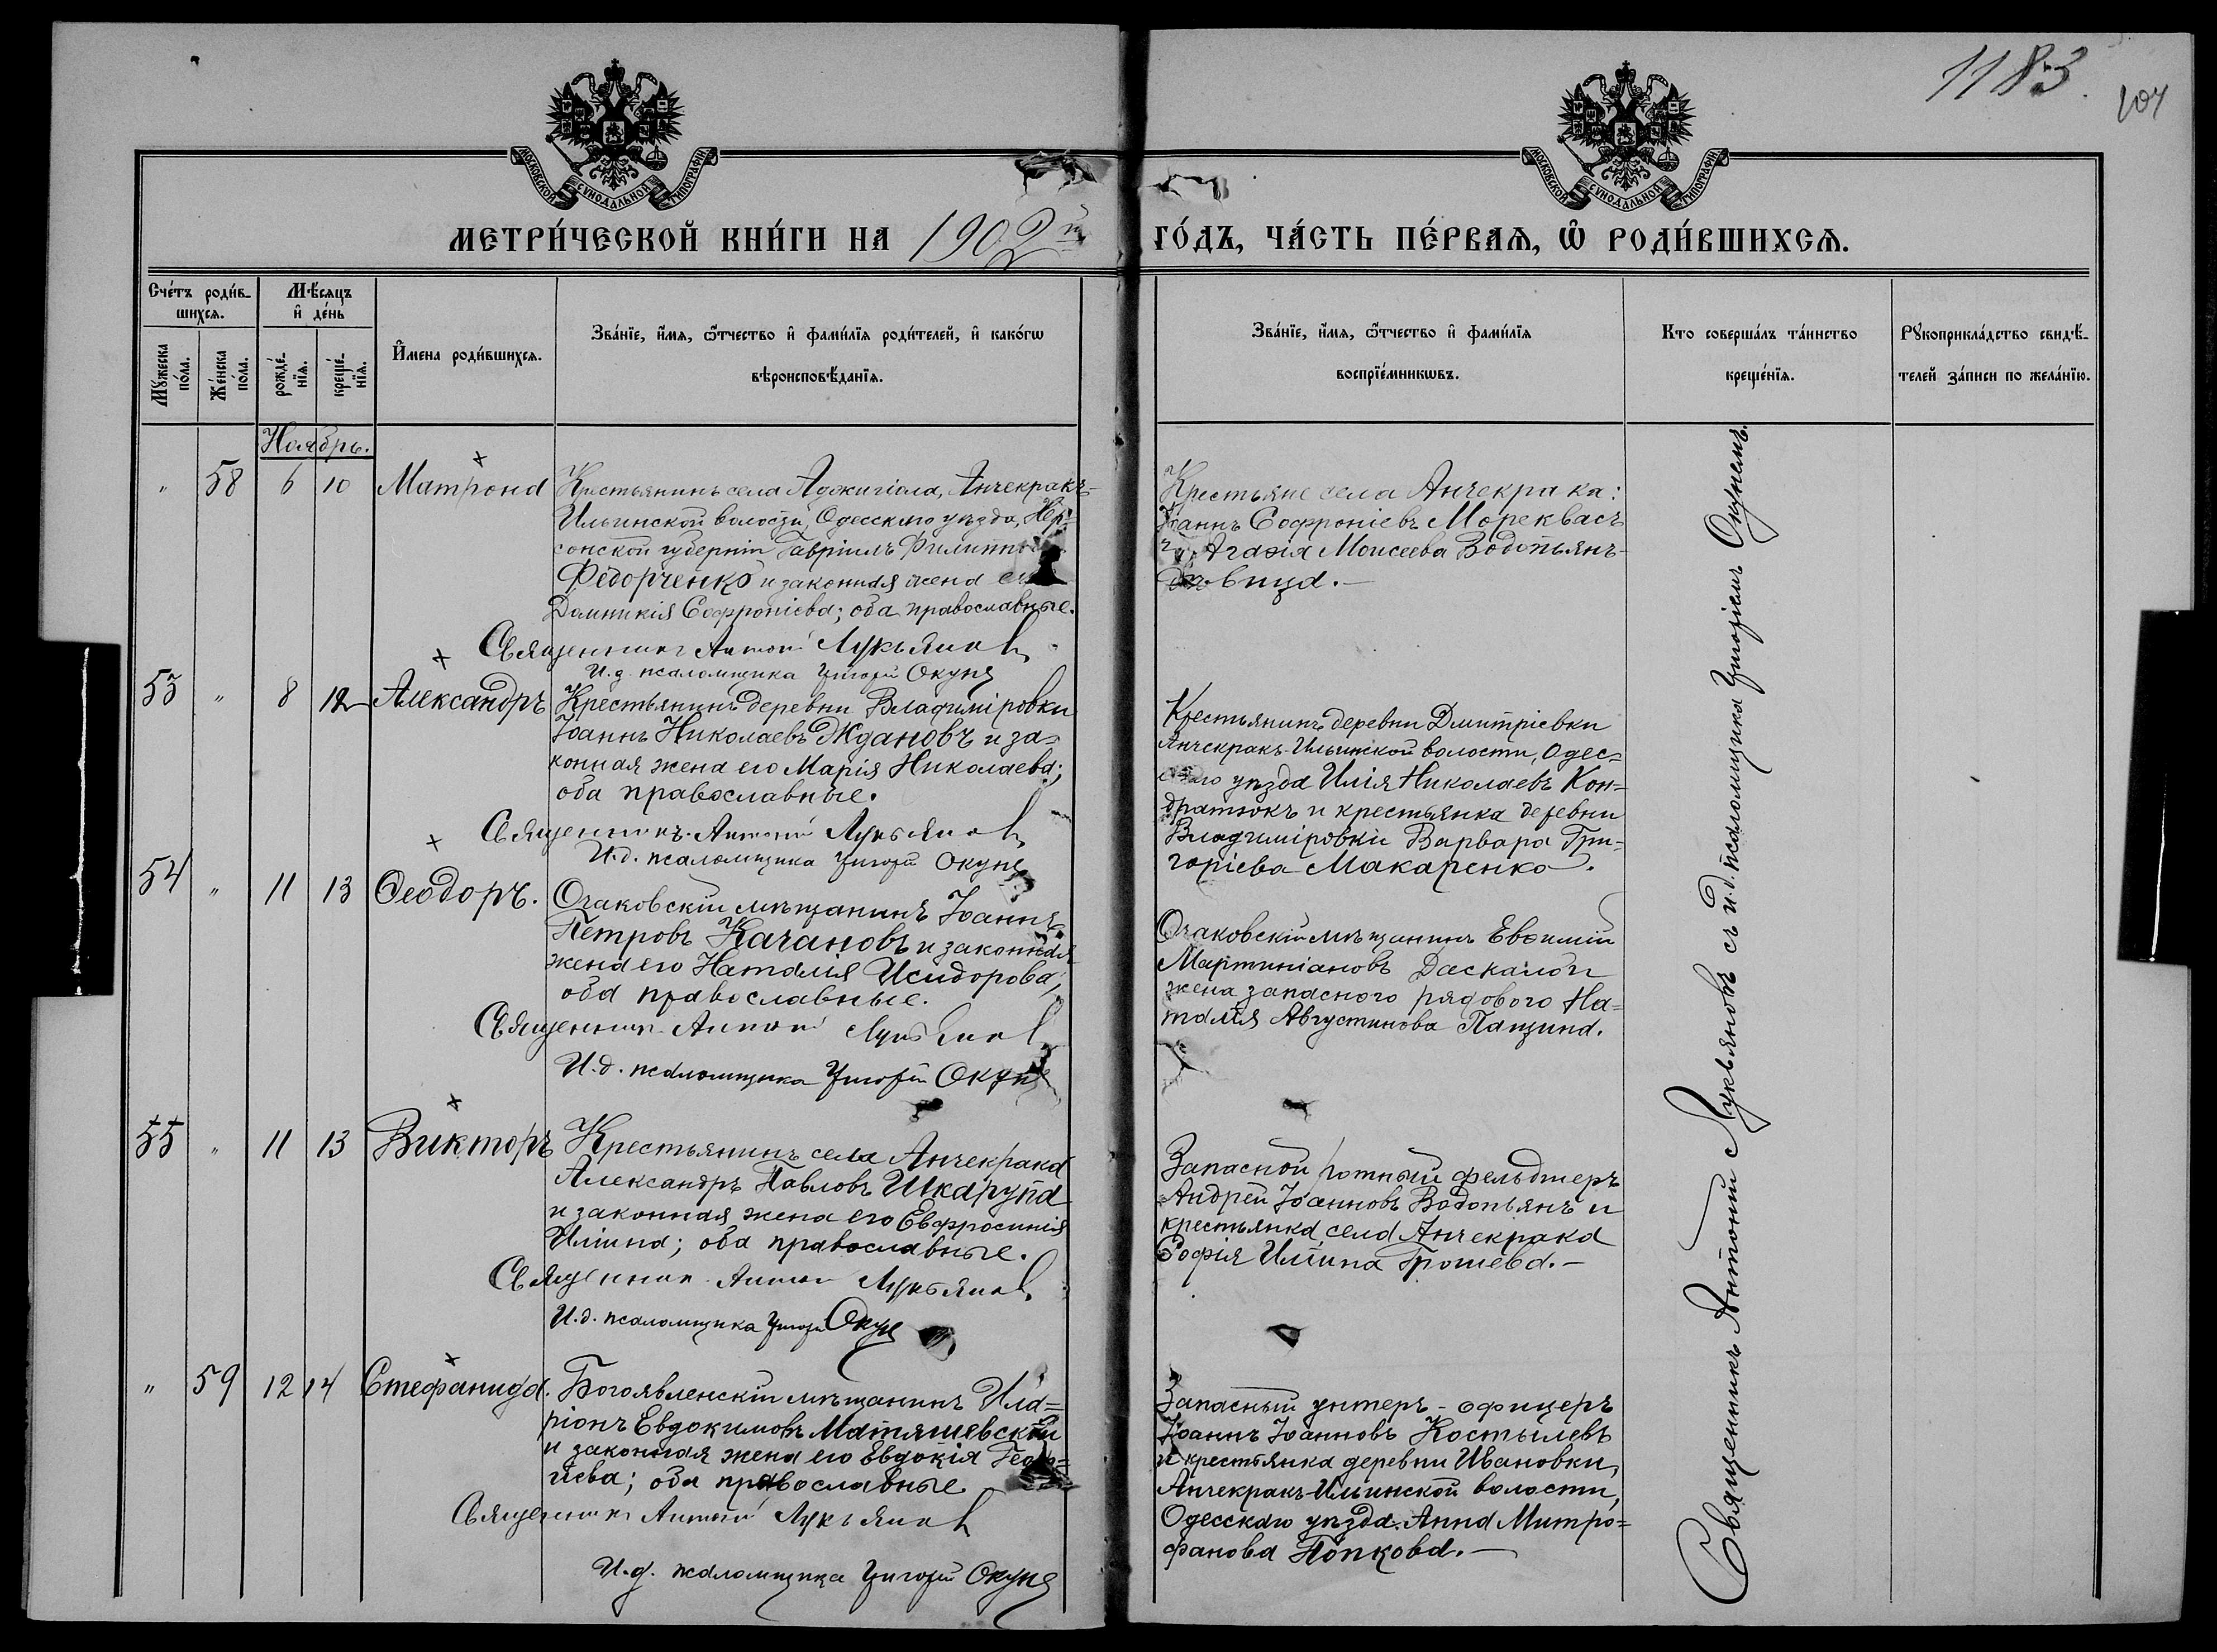 1183.
104
МОСКОВСКОЙ СѴНОДАЛЬНОЙ ТИПОГРАФІИ
МОСКОВСКОЙ СѴНОДАЛЬНОЙ ТИПОГРАФІИ
МЕТРИ́ЧЕСКОЙ КНИ́ГИ НА 1902й ГО́ДЪ, ЧА́СТЬ ПЕ́РВАѦ, Ѡ҆ РОДИ́ВШИХСѦ.
Сче́тъ роди́в-
шихсѧ.
Мꙋ́жеска по́ла.
Же́нска по́ла.
Мѣ́сѧцъ
и҆ де́нь
рожде́-
нїѧ.
креще́-
нїѧ.
И҆́мена роди́вшихсѧ.
Зва́нїе, и҆́мѧ, ѻ҆́тчество и҆ фами́лїѧ роди́телей, и҆ како́гѡ
вѣроисповѣ́данїѧ.
Зва́нїе, и҆́мѧ, ѻ҆́тчество и҆ фами́лїѧ
воспрїе́мникѡвъ.
Кто соверша́лъ та́инство
креще́нїѧ.
Рꙋкоприкла́дство свидѣ́-
телей за́писи по жела́нїю.
Ноябрь.
" 58 6 10 Матрона
Крестьянинъ села Аджигіола, Анчекракъ-
Ильинской волости, Одесскаго уѣзда, Хер-
сонской губерніи Гавріилъ
Федорченко и законная жена
Домникія Софроніева; оба православные.
Священникъ Антоній Лукьяновъ
И.д. псаломщика Григорій Окунь
Крестьяне села Анчекрака:
Іоаннъ Софроніевъ Мореквасъ
и Агафія Моисеева Водопьянъ-
вица.—
53 " 8 12 Александръ
Крестьянинъ деревни Владиміровки
Іоаннъ Николаевъ Ждановъ и за=
конная жена его Марія Николаева;
оба православные.
Священникъ Антоній Лукьяновъ
И.д. псаломщика Григорій Окунь
Крестьянинъ деревни Дмитріевки
Анчекракъ-Ильинской волости, Одес=
скаго уѣзда Илія Николаевъ Кон=
дратюкъ и крестьянка деревни
Владиміровки Варвара Гри=
горіева Макаренко.
54 " 11 13 Ѳеодоръ.
Очаковскій мѣщанинъ Іоаннъ
Петровъ Качановъ и законная
жена его Наталія Исидорова;
оба православные.
Священникъ Антоній Лукьяновъ
И.д. псаломщика Григорій Окунь
Очаковскій мѣщанинъ Евѳимій
Мартиніановъ Даскалъ и
жена запасного рядового На=
талія Августинова Панцина.
55 " 11 13 Викторъ
Крестьянинъ села Анчекрака
Александръ Павловъ Шкарупа
и законная жена его Евфросинія
Иліина; оба православные.
Священникъ Антоній Лукьяновъ
И.д. псаломщика Григорій Окунь
Запасной ротный фельдшеръ
Андрей Іоанновъ Водопьянъ и
крестьянка села Анчекрака
Софія Иліина Грошева.—
" 59 12 14 Стефанида.
Богоявленскій мѣщанинъ Ила=
ріонъ Евдокимовъ Матяшевскій
и законная жена его Евдокія Геор=
гіева; оба православные.
Священникъ Антоній Лукьяновъ
И.д. псаломщика Григорій Окунь
Запасный унтеръ-офицеръ
Іоаннъ Іоанновъ Костылевъ
и крестьянка деревни Ивановки,
Анчекракъ-Ильинской волости,
Одесскаго уѣзда Анна Митро=
фанова Попкова.—
Священникъ Антоній Лукьяновъ съ и.д. псаломщика Григоріемъ Окунемъ.